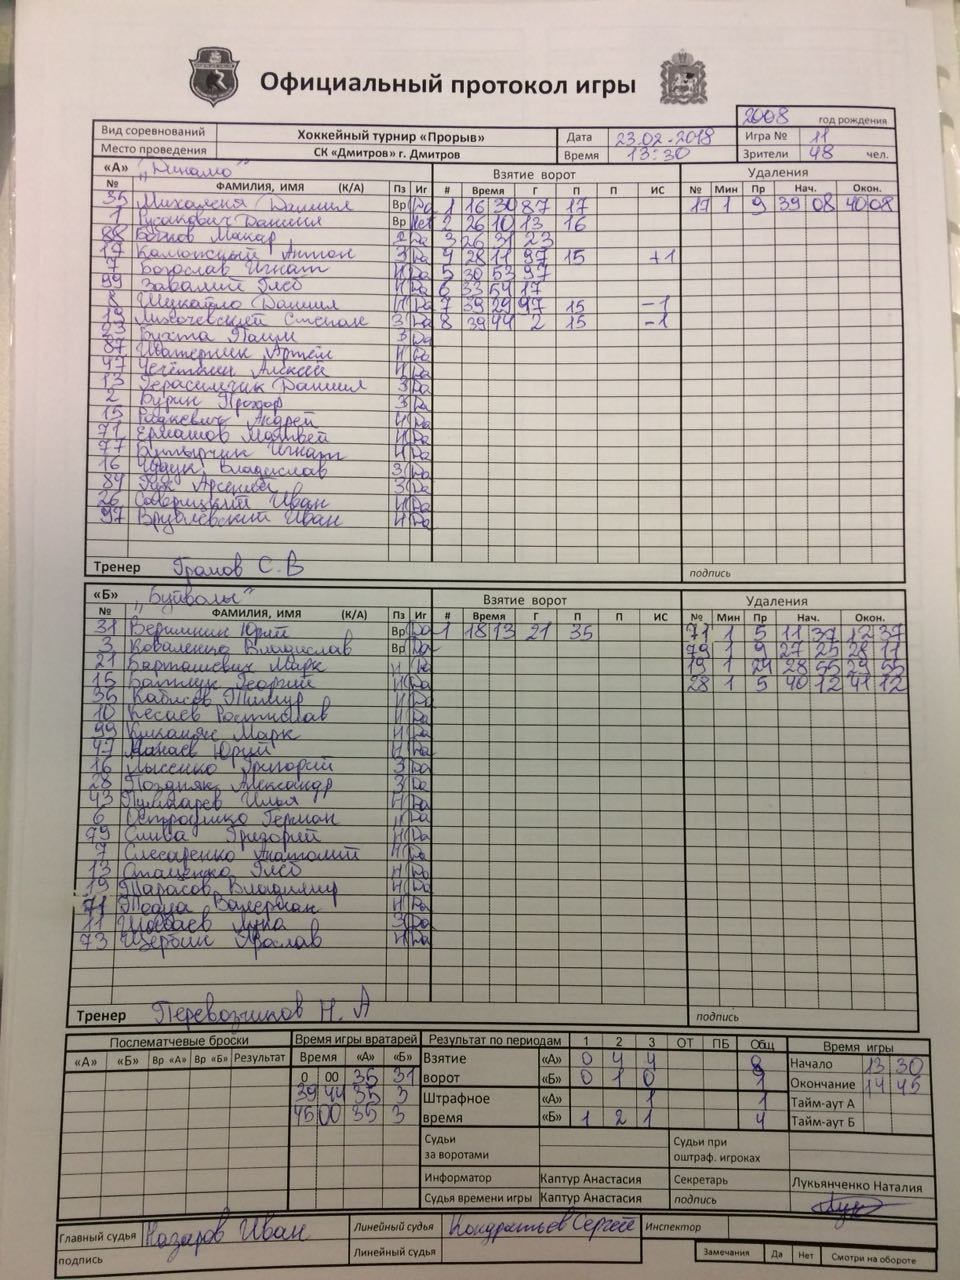 Официальный протокол игры
2008 год рождения
Вид соревнований Хоккейный турнир «Прорыв» Дата 23.02.2018 Игра № 11
Место проведения СК «Дмитров» г. Дмитров Время 13:30 Зрители 48 чел.
«А» „Динамо" Взятие ворот Удаления
№ ФАМИЛИЯ, ИМЯ (К/А) Пз Иг # Время Г П П ИС № Мин Пр Нач. Окон.
35 Михаленя Даниил Вр Да 1 16 30 87 17 17 1 9 39 08 40 08
1 Русакович Даниил Вр Нет 2 26 10 13 16
88 Бочков Макар Да 3 26 31 23
17 Антон З Да 4 28 11 97 15 +1
7 Богослав Игнат Н Да 5 30 53 97
99 Завалий Глеб Н Да 6 33 54 17
8 Даниил Н Да 7 39 29 97 15 -1
19 Степан З Да 8 39 44 2 15 -1
23 Бухта Павел З Да
87 Артём Н Да
47 Алексей Н Да
13 Герасимчик Даниил З Да
2 Бурин Прохор З Да
15 Радкевич Андрей Н Да
71 Ермашов Матвей Н Да
77 Игнат Н Да
16 Владислав З Да
89 Арсений З Да
26 Саверицкий Иван Н Да
97 Врублевский Иван Н Да
Тренер Громов С. В подпись
«Б» „Буйволы" Взятие ворот Удаления
№ ФАМИЛИЯ, ИМЯ (К/А) Пз Иг # Время Г П П ИС № Мин Пр Нач. Окон.
31 Юрий Вр Да 1 18 13 21 35 71 1 5 11 37 12 37
3 Коваленко Владислав Вр Да 79 1 9 27 25 28 11
21 Барташевич Марк Н Да 19 1 24 28 55 29 55
15 Георгий Н Да 28 1 5 40 12 41 12
36 Тимур Н Да
10 Кесаев Ростислав Н Да
99 Киракаян Марк Н Да
47 Юрий Н Да
16 Лысенко Григорий З Да
28 Поздняк Александр З Да
43 Пушкарев Илья Н Да
6 Остроушко Герман Н Да
79 Слива Григорий Н Да
7 Слесаренко Анатолий Н Да
13 Стаценко Глеб Н Да
19 Тарасов Владимир Н Да
71 Валериан Н Да
11 Лука З Да
73 Щербин Ярослав Н Да
Тренер Перевозчиков Н. А подпись
Послематчевые броски Время игры вратарей Результат по периодам 1 2 3 ОТ ПБ Общ Время игры
«А» «Б» Вр «А» Вр «Б» Результат Время «А» «Б»
Взятие ворот «А» 0 4 4 8 Начало 13 30
0 00 35 31 «Б» 0 1 0 1 Окончание 14 45
39 44 35 3 Штрафное время «А» 1 1 Тайм-аут А
45 00 35 3 «Б» 1 2 1 4 Тайм-аут Б
Судьи за воротами Судьи при оштраф. игроках
Информатор Каптур Анастасия Секретарь Лукьянченко Наталия
Судья времени игры Каптур Анастасия подпись
Главный судья Назаров Иван Линейный судья Кондратьев Сергей Инспектор
подпись Линейный судья Замечания Да Нет Смотри на обороте